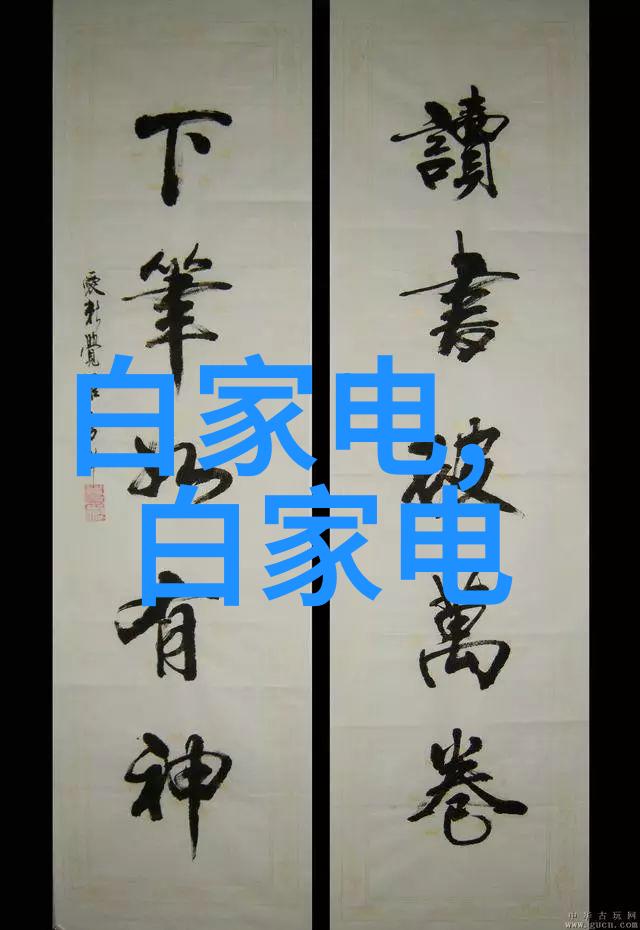 讀書破萬卷
下筆如有神
自家电,
白家电
中华古玩网
www.gucn.com